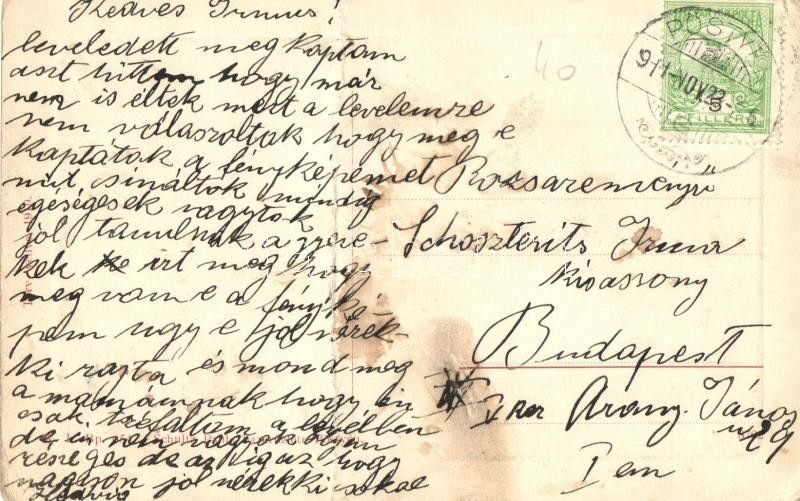 Kedves Irmus!
leveledett megkaptam
aszt hittem hogy már
nem is éltek mert a levelemre
nem válaszoltak hogy meg e
kaptátak a fényképemet
mit csináltok mindig
egéségesek vagytok
jol tanulnak a gyere-
kek ird meg hogy
meg vam e a fényké-
pem ugy e jol nézek
ki rajta és mond meg
a mamámnak hogy én
csak tréfáltam a levélben
de én nem vagyok
részeges de az igaz hogy
nagyon jol nézek ki
40
POSTA
911 NOV 22
5 FILLÉR
Rozsareményi
Schoszterits Irma
kisasszony
Budapest
V ker Arany János
u 29
I em